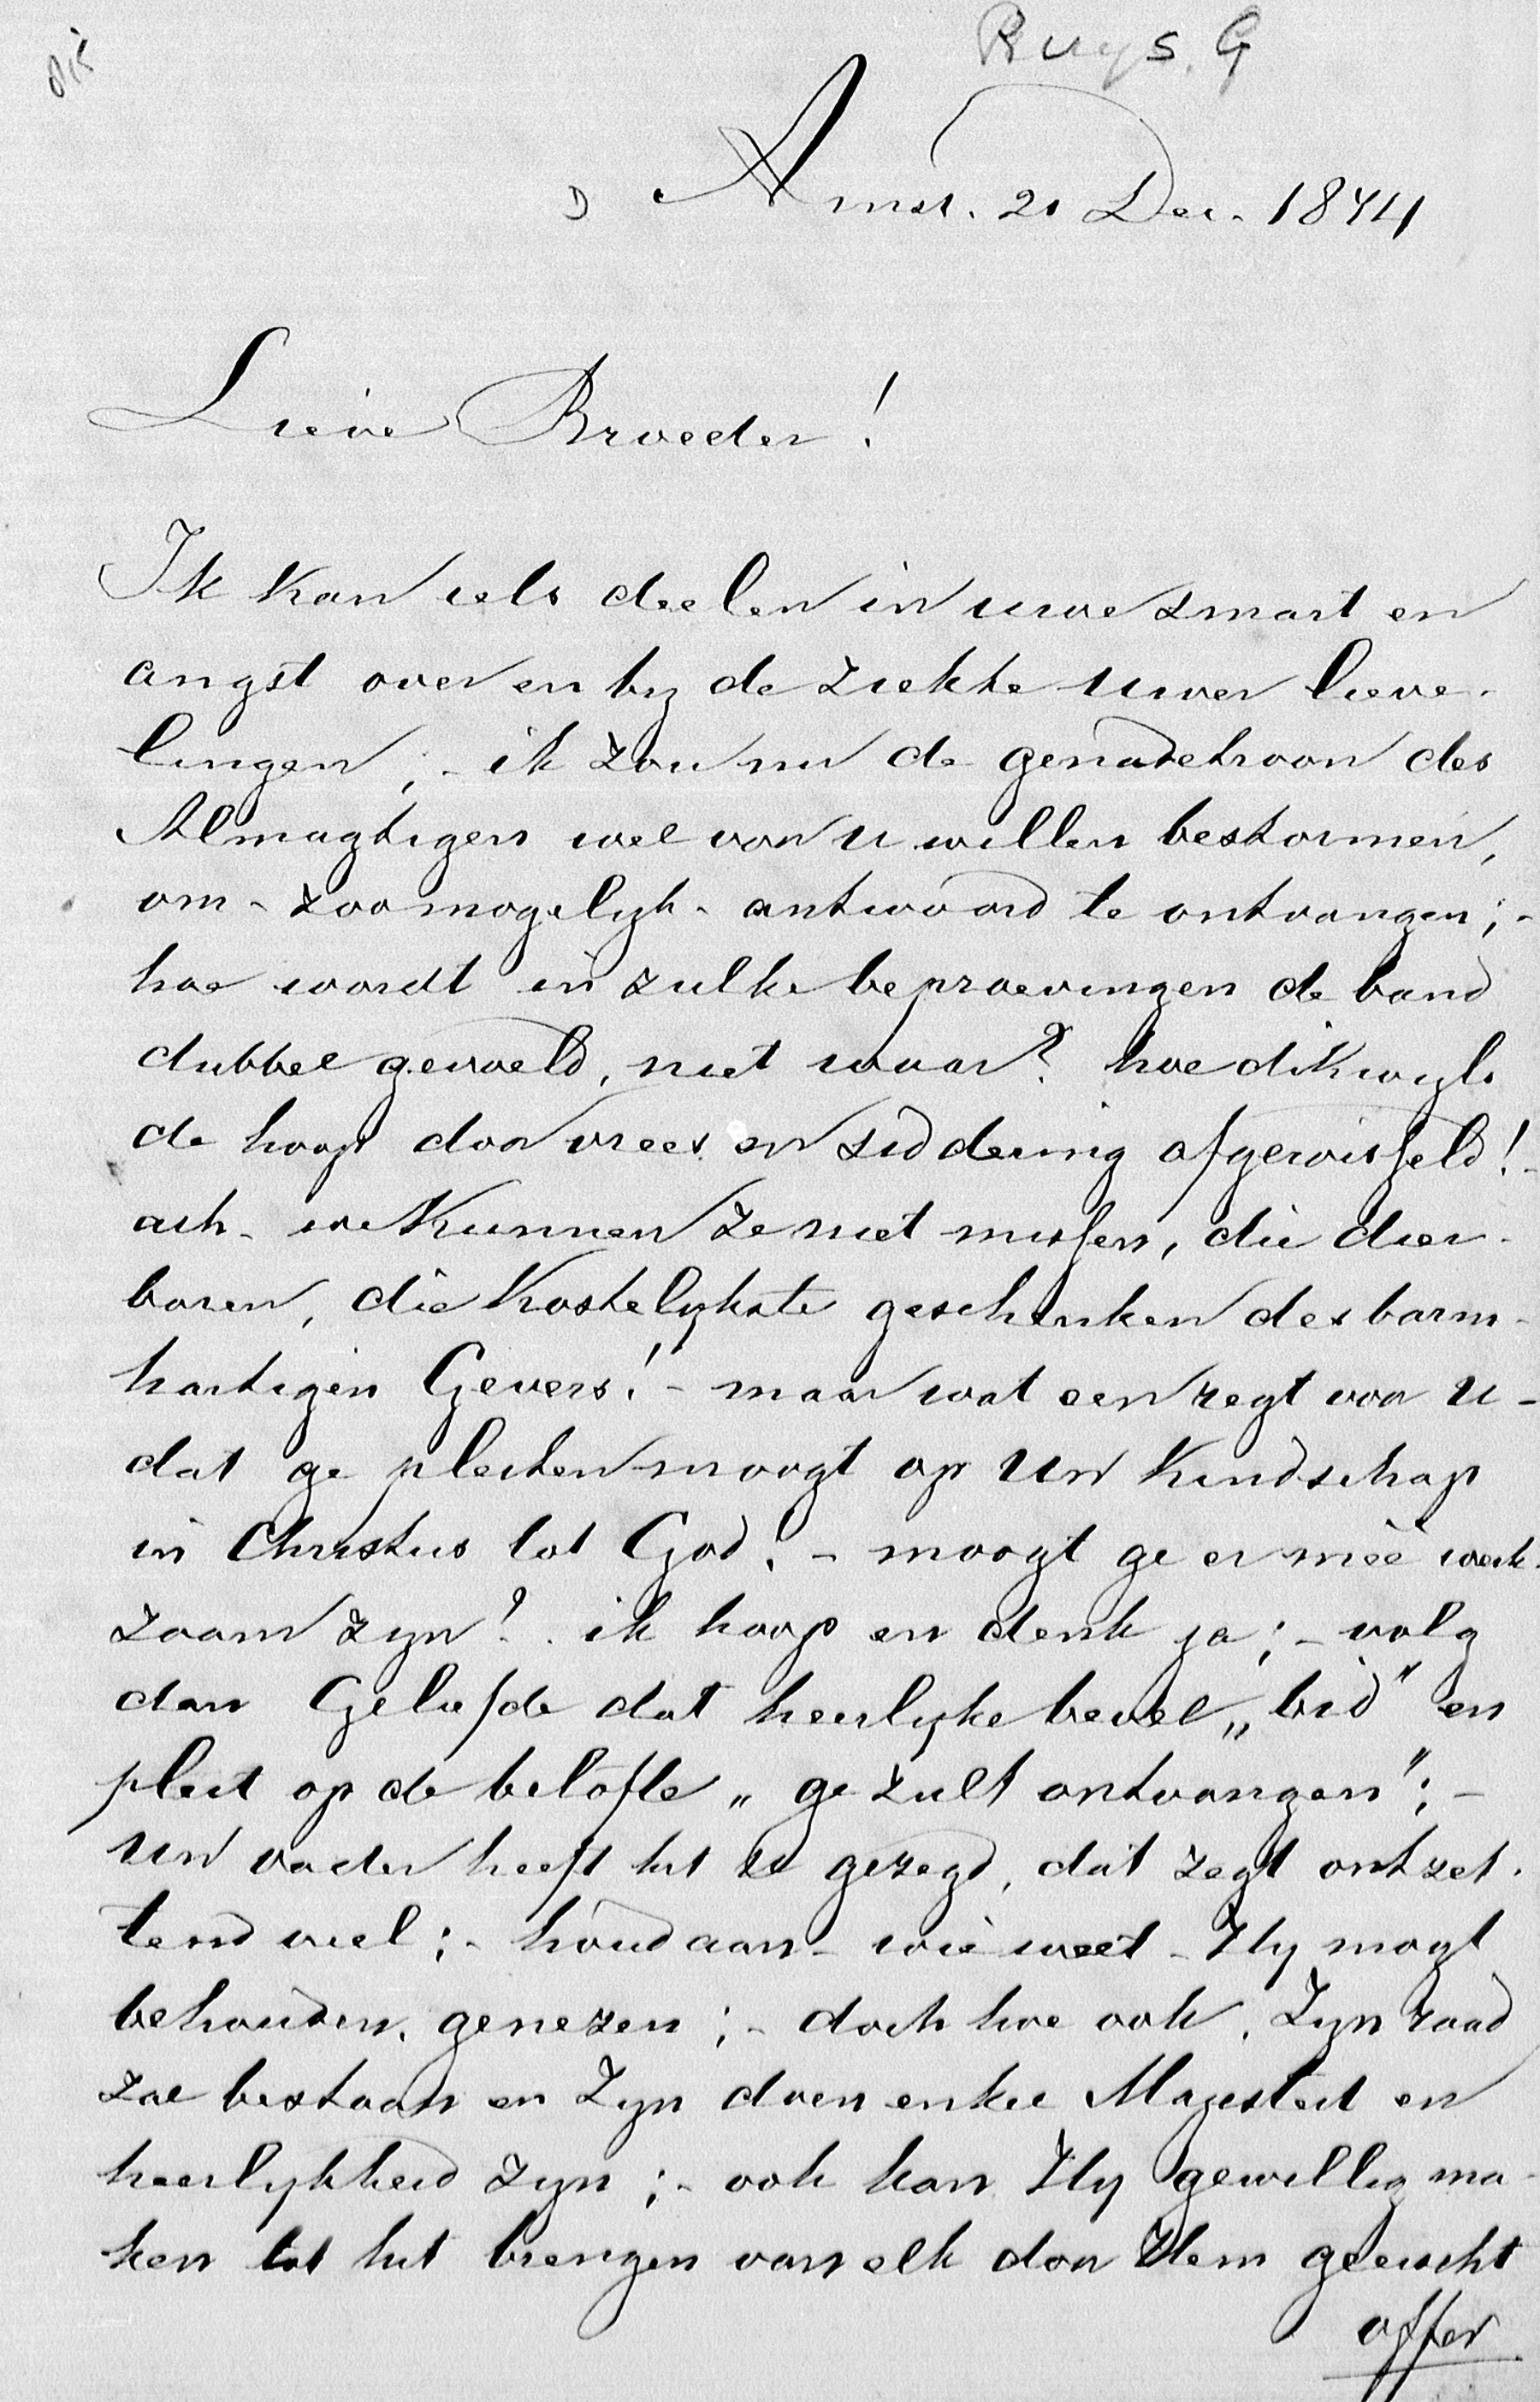 Ruys. G
Amst. 21 Dec. 1844
Lieve Broeder!
Ik kan iets deelen in uwe smart en
angst over en by de ziekte uwer lieve-
lingen; - ik zou nu de genadetroon des
Almagtigen wel voor u willen bestormen,
om - zoo mogelyk - antwoord te ontvangen; -
hoe wordt in zulke beproevingen de band
dubbel gevoeld, niet waar? hoe dikwyls
de hoop door vrees en siddering afgewisseld! -
ach - we kunnen ze niet missen, die dier-
baren, die kostelykste geschenken des barm-
hartigen Gevers! - maar wat een regt voor u -
dat ge pleiten moogt op Uw kindschap
in Christus tot God! - moogt ge er mèè werk-
zaam zyn? - ik hoop en denk ja; - volg
dan Geliefde dat heerlyke bevel „bid" en
pleit op de belofte „ge zult ontvangen"; -
Uw vader heeft het U gezegd, dat zegt ontzet-
tend veel; - houd aan - wie weet - Hy mogt
behouden, genezen; - doch hoe ook, Zyn raad
zal bestaan en Zyn doen enkel Majesteit en
heerlykheid zyn; - ook kan Hy gewillig ma-
ken tot het brengen van elk door Hem geeischt
offer